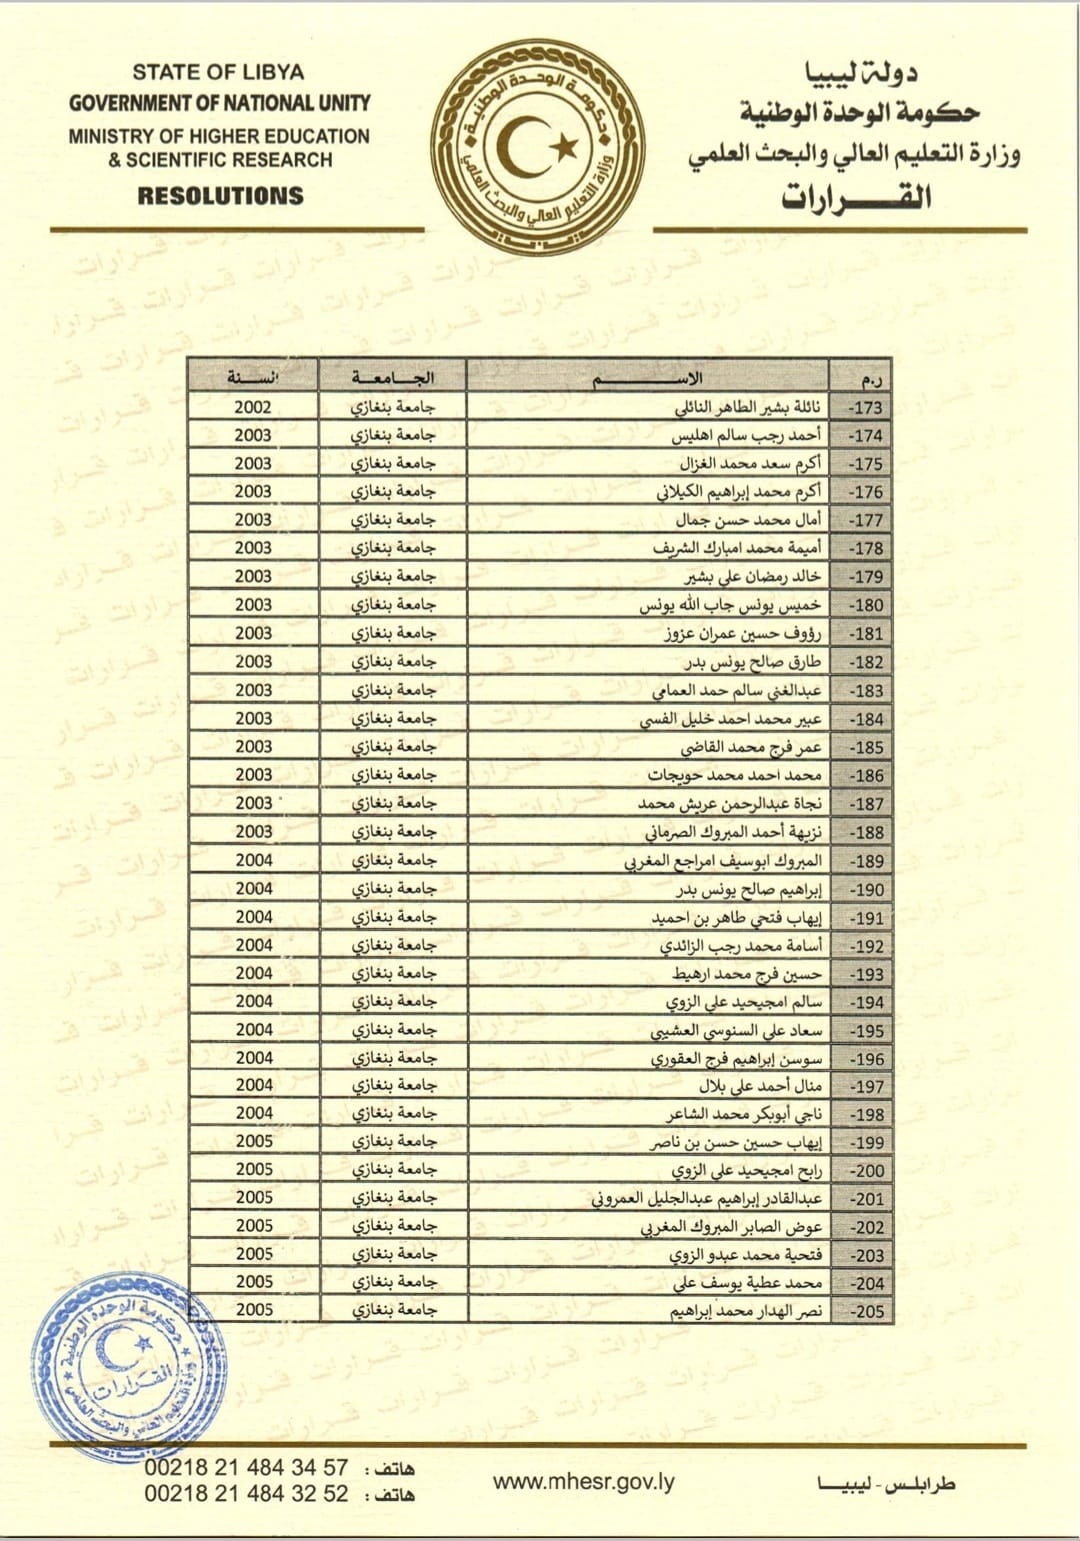 STATE OF LIBYA
GOVERNMENT OF NATIONAL UNITY
MINISTRY OF HIGHER EDUCATION
& SCIENTIFIC RESEARCH
RESOLUTIONS
دولة ليبيا
حكومة الوحدة الوطنية
وزارة التعليم العالي والبحث العلمي
القـــرارات
حكومة الوحدة الوطنية
وزارة التعليم العالي والبحث العلمي
ر.م الاســـم الجـامعـة السـنة
173- نائلة بشير الطاهر النائلي جامعة بنغازي 2002
174- أحمد رجب سالم اهليس جامعة بنغازي 2003
175- أكرم سعد محمد الغزال جامعة بنغازي 2003
176- أكرم محمد إبراهيم الكيلاني جامعة بنغازي 2003
177- أمال محمد حسن جمال جامعة بنغازي 2003
178- أميمة محمد امبارك الشريف جامعة بنغازي 2003
179- خالد رمضان علي بشير جامعة بنغازي 2003
180- خميس يونس جاب الله يونس جامعة بنغازي 2003
181- رؤوف حسين عمران عزوز جامعة بنغازي 2003
182- طارق صالح يونس بدر جامعة بنغازي 2003
183- عبدالغني سالم حمد العمامي جامعة بنغازي 2003
184- عبير محمد احمد خليل الفسي جامعة بنغازي 2003
185- عمر فرج محمد القاضي جامعة بنغازي 2003
186- محمد احمد محمد حويجات جامعة بنغازي 2003
187- نجاة عبدالرحمن عريش محمد جامعة بنغازي 2003
188- نزيهة أحمد المبروك الصرماني جامعة بنغازي 2003
189- المبروك ابوسيف امراجع المغربي جامعة بنغازي 2004
190- إبراهيم صالح يونس بدر جامعة بنغازي 2004
191- إيهاب فتحي طاهر بن احميد جامعة بنغازي 2004
192- أسامة محمد رجب الزائدي جامعة بنغازي 2004
193- حسين فرج محمد ارهيط جامعة بنغازي 2004
194- سالم امجيحيد علي الزوي جامعة بنغازي 2004
195- سعاد علي السنوسي العشيبي جامعة بنغازي 2004
196- سوسن إبراهيم فرج العقوري جامعة بنغازي 2004
197- منال أحمد علي بلال جامعة بنغازي 2004
198- ناجي أبوبكر محمد الشاعر جامعة بنغازي 2004
199- إيهاب حسين حسن بن ناصر جامعة بنغازي 2005
200- رابح امجيحيد علي الزوي جامعة بنغازي 2005
201- عبدالقادر إبراهيم عبدالجليل العمروني جامعة بنغازي 2005
202- عوض الصابر المبروك المغربي جامعة بنغازي 2005
203- فتحية محمد عبدو الزوي جامعة بنغازي 2005
204- محمد عطية يوسف علي جامعة بنغازي 2005
205- نصر الهدار محمد إبراهيم جامعة بنغازي 2005
حكومة الوحدة الوطنية
القرارات
وزارة التعليم العالي والبحث العلمي
هاتف : 00218 21 484 34 57
هاتف : 00218 21 484 32 52
www.mhesr.gov.ly
طرابلـس - ليبيـا